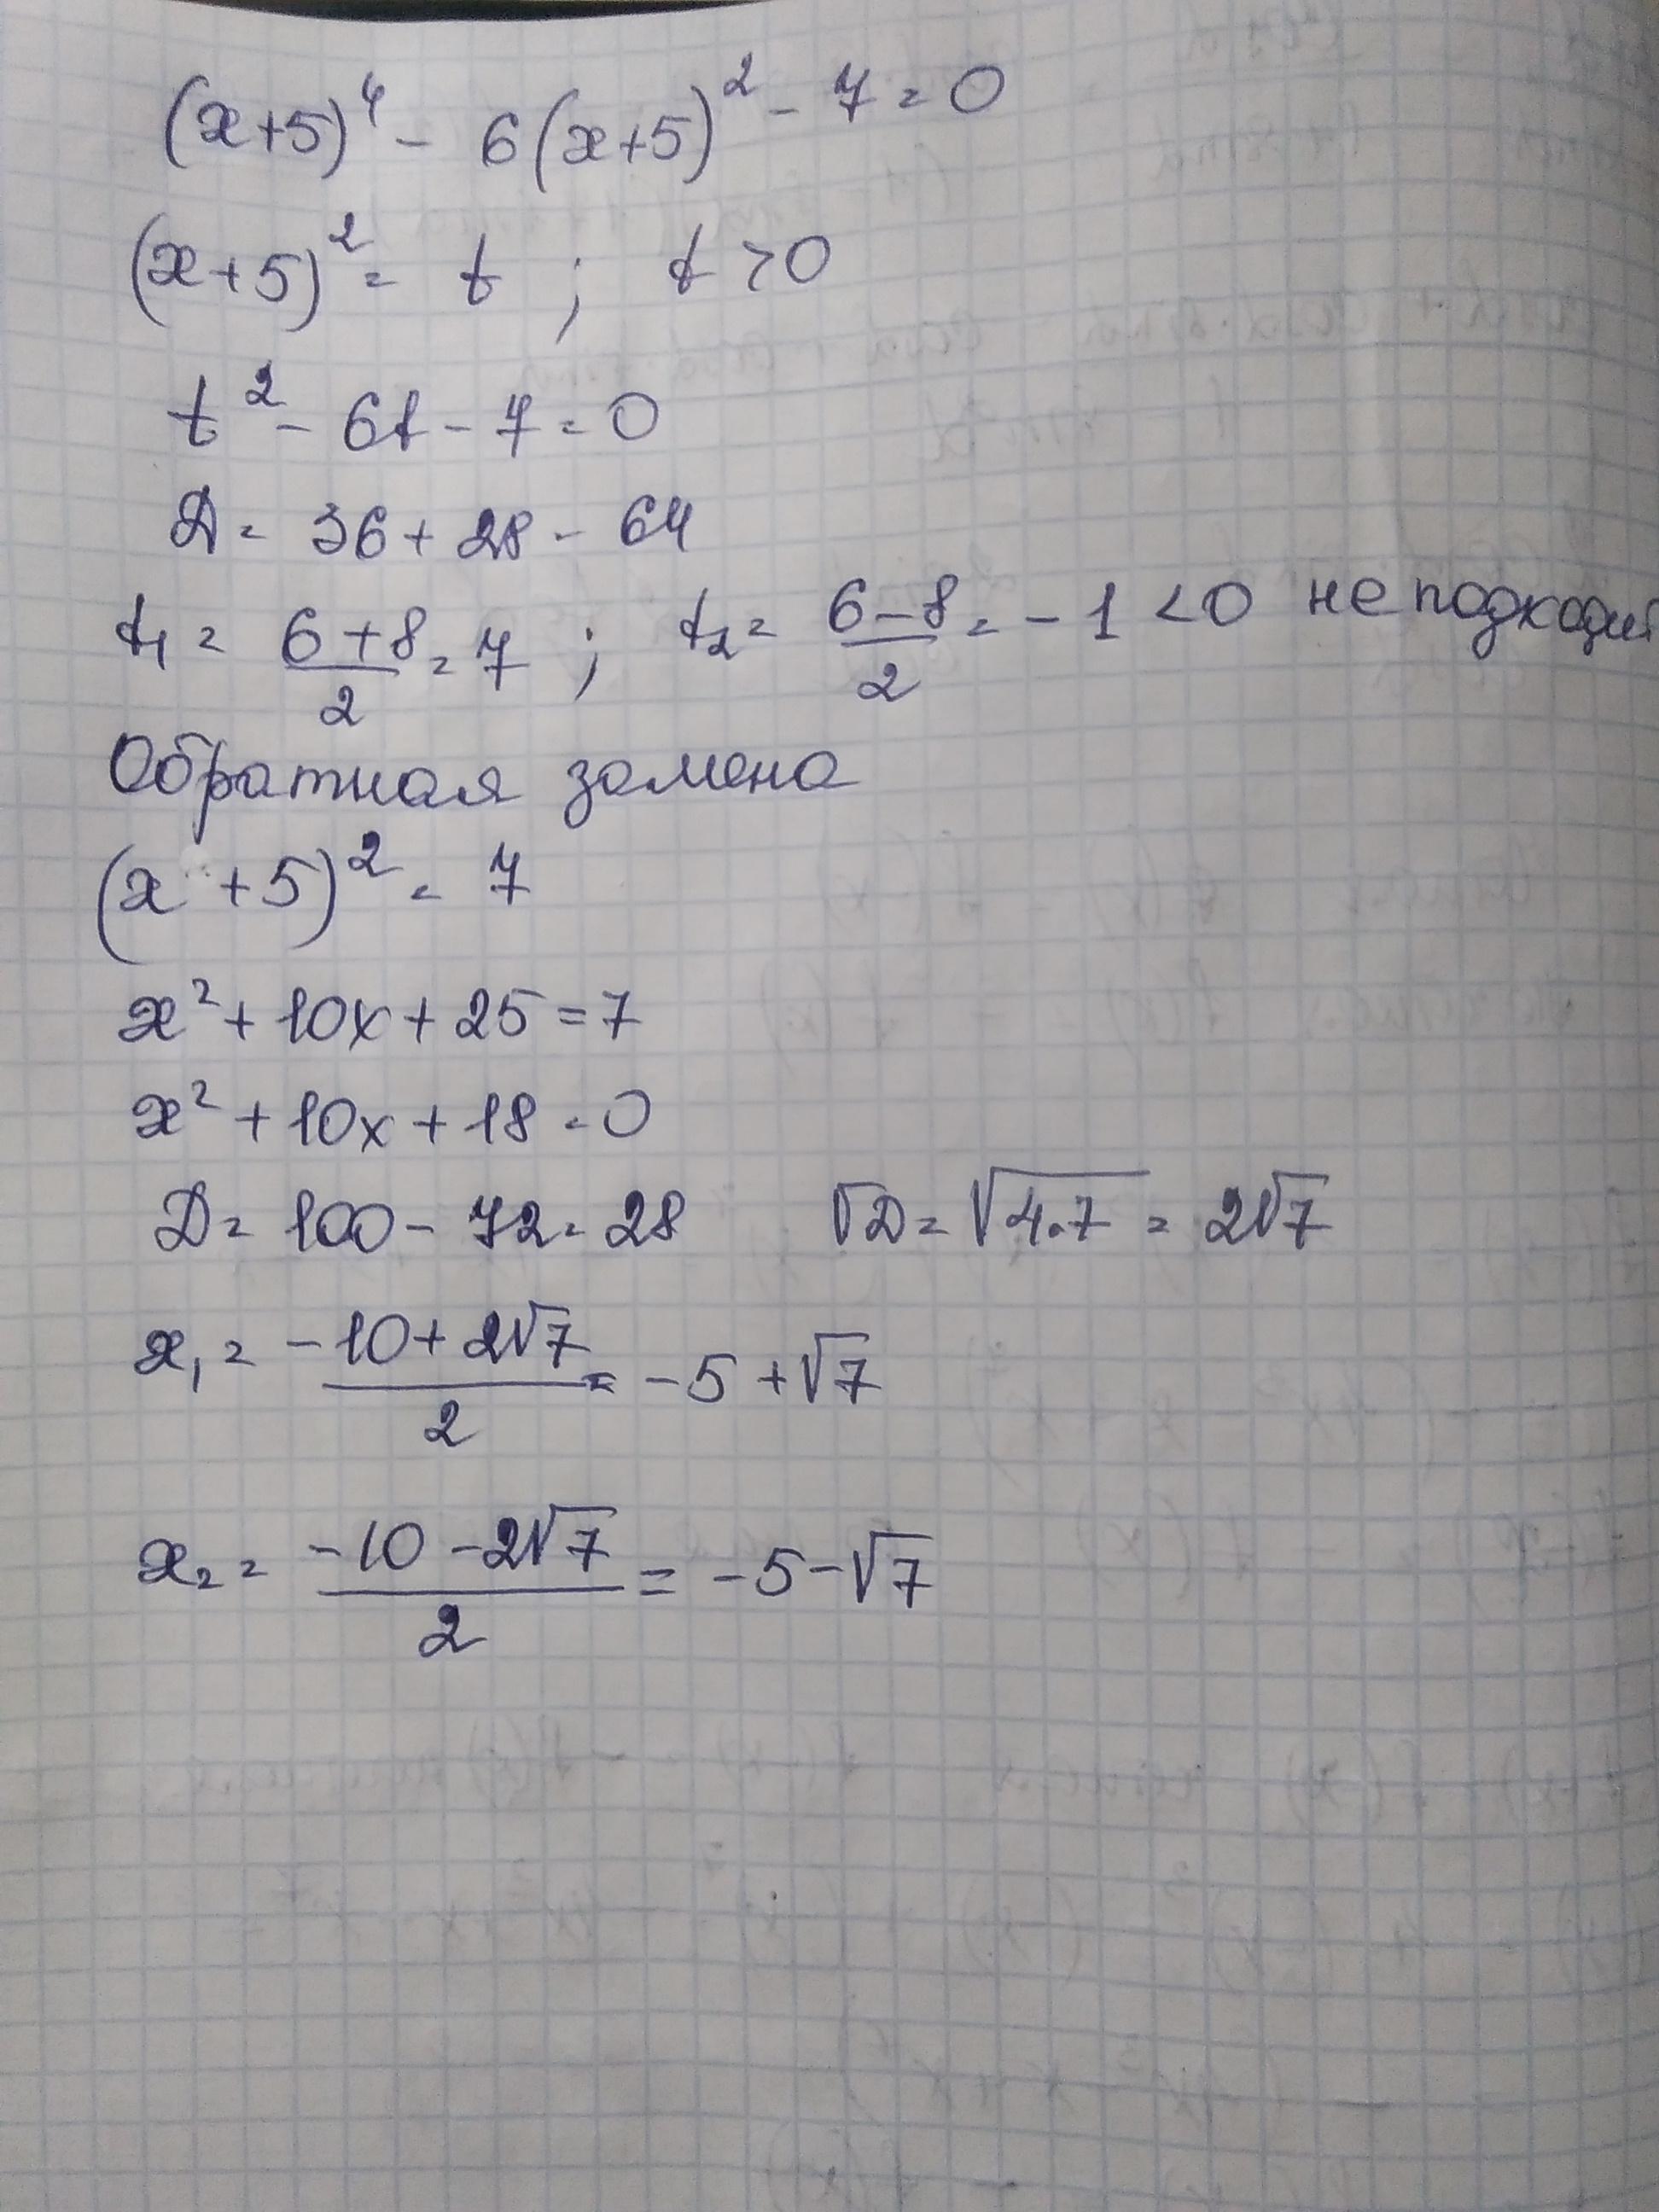 (x+5)⁴ - 6(x+5)² - 7 = 0
(x+5)² = t ; t > 0
t² - 6t - 7 = 0
D = 36 + 28 - 64
t₁ = (6+8)/2 = 7 ; t₂ = (6-8)/2 = -1 < 0 не подходит
Обратная замена
(x+5)² = 7
x² + 10x + 25 = 7
x² + 10x + 18 = 0
D = 100 - 72 = 28 √D = √(4·7) = 2√7
x₁ = (-10+2√7)/2 = -5+√7
x₂ = (-10-2√7)/2 = -5-√7